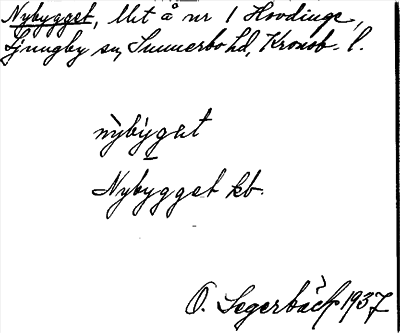 Nybygget, lht å nr 1 Hovdinge,
Ljungby sn, Sunnerbo hd, Kronob. l.
nỳbýgət
Nybygget kb.
O. Segerbäck 1937